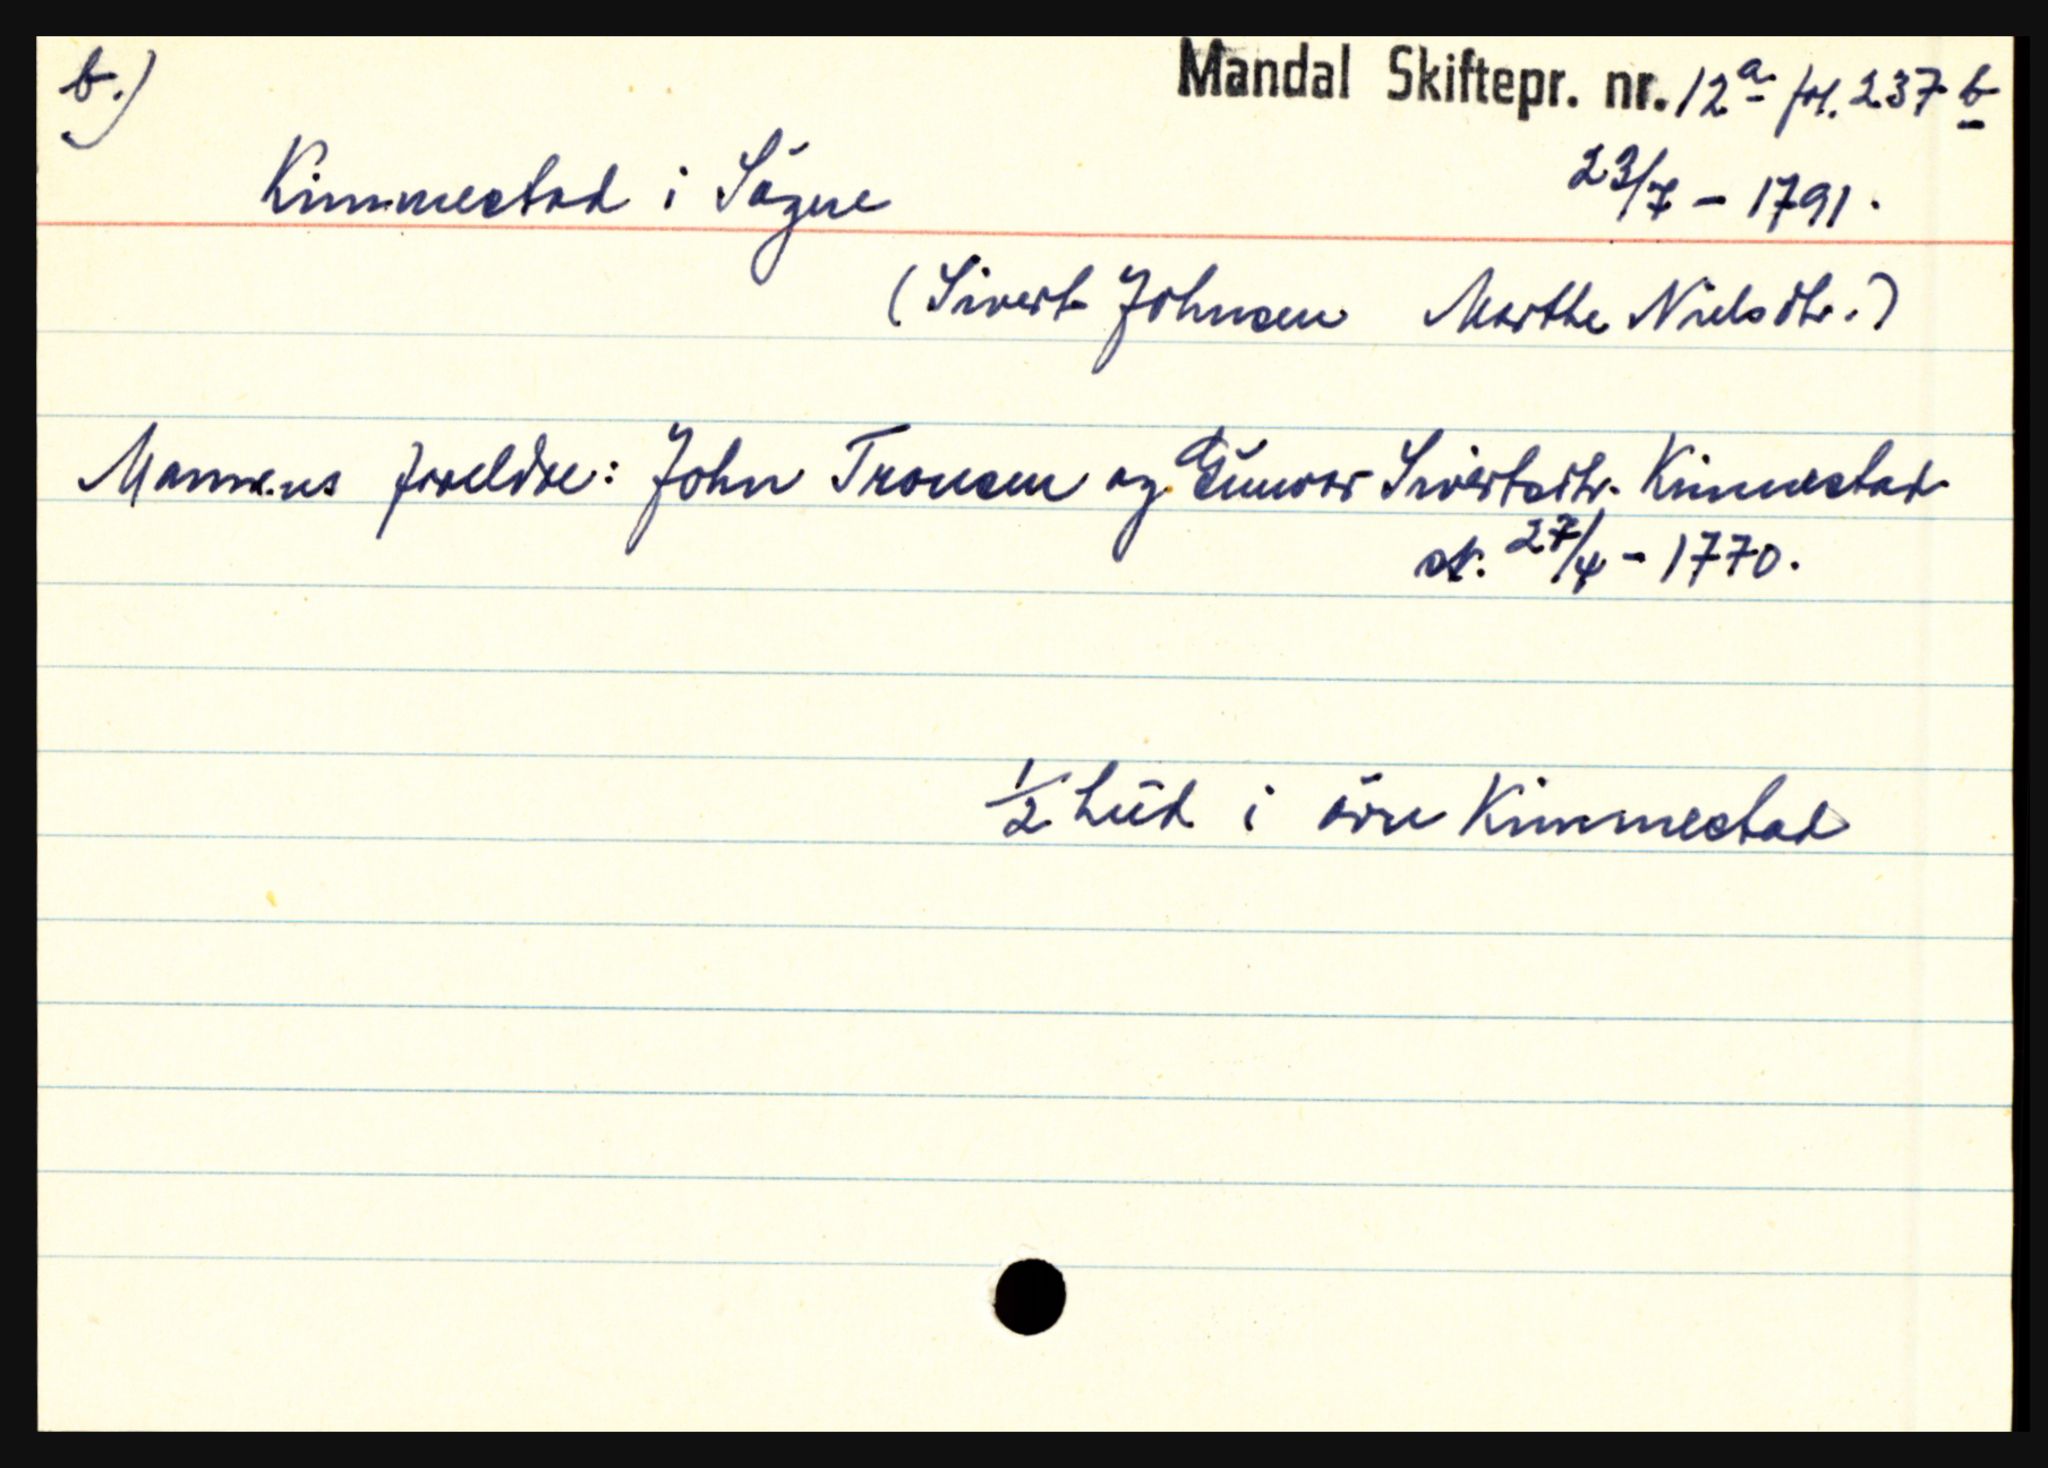 b.)
Mandal Skiftepr. nr. 12a fol. 237 b
Kimmestad i Sögne
23/7 - 1791.
(Sivert Johnsen Marthe Nielsdtr.)
Mannens foreldre: John Tronsen og Gunvor Sivertsdtr. Kimmestad
sk. 27/4 - 1770.
1/2 hud i övre Kimmestad